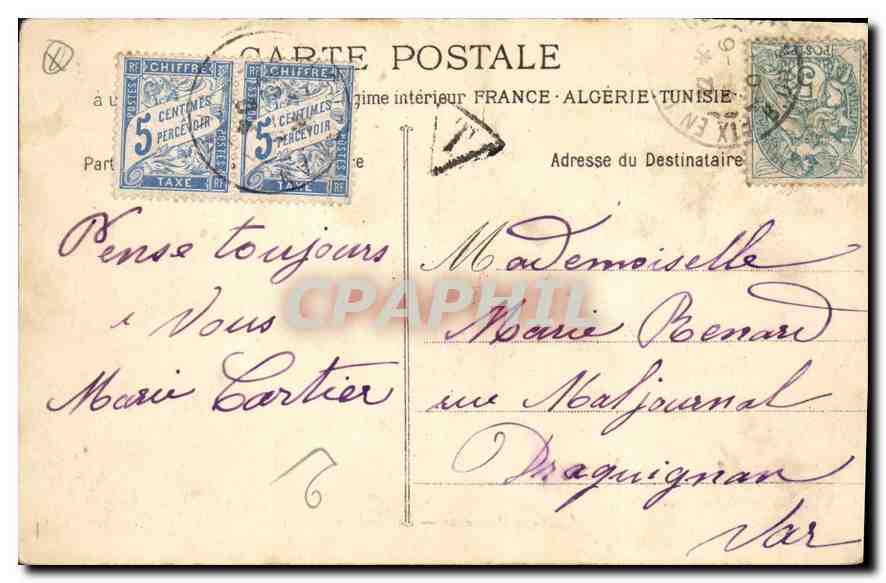 CARTE POSTALE
à u gime intérieur FRANCE - ALGÉRIE - TUNISIE
Part re
Adresse du Destinataire
CHIFFRE
POSTES
5 CENTIMES
À PERCEVOIR
TAXE
RF
CHIFFRE
POSTES
5 CENTIMES
À PERCEVOIR
TAXE
RF
T
POSTES
5
FIX EN
Pense toujours
à Vous
Marie Cartier
Mademoiselle
Marie Renard
rue Maljournal
Draguignan
Var
CPAPHIL